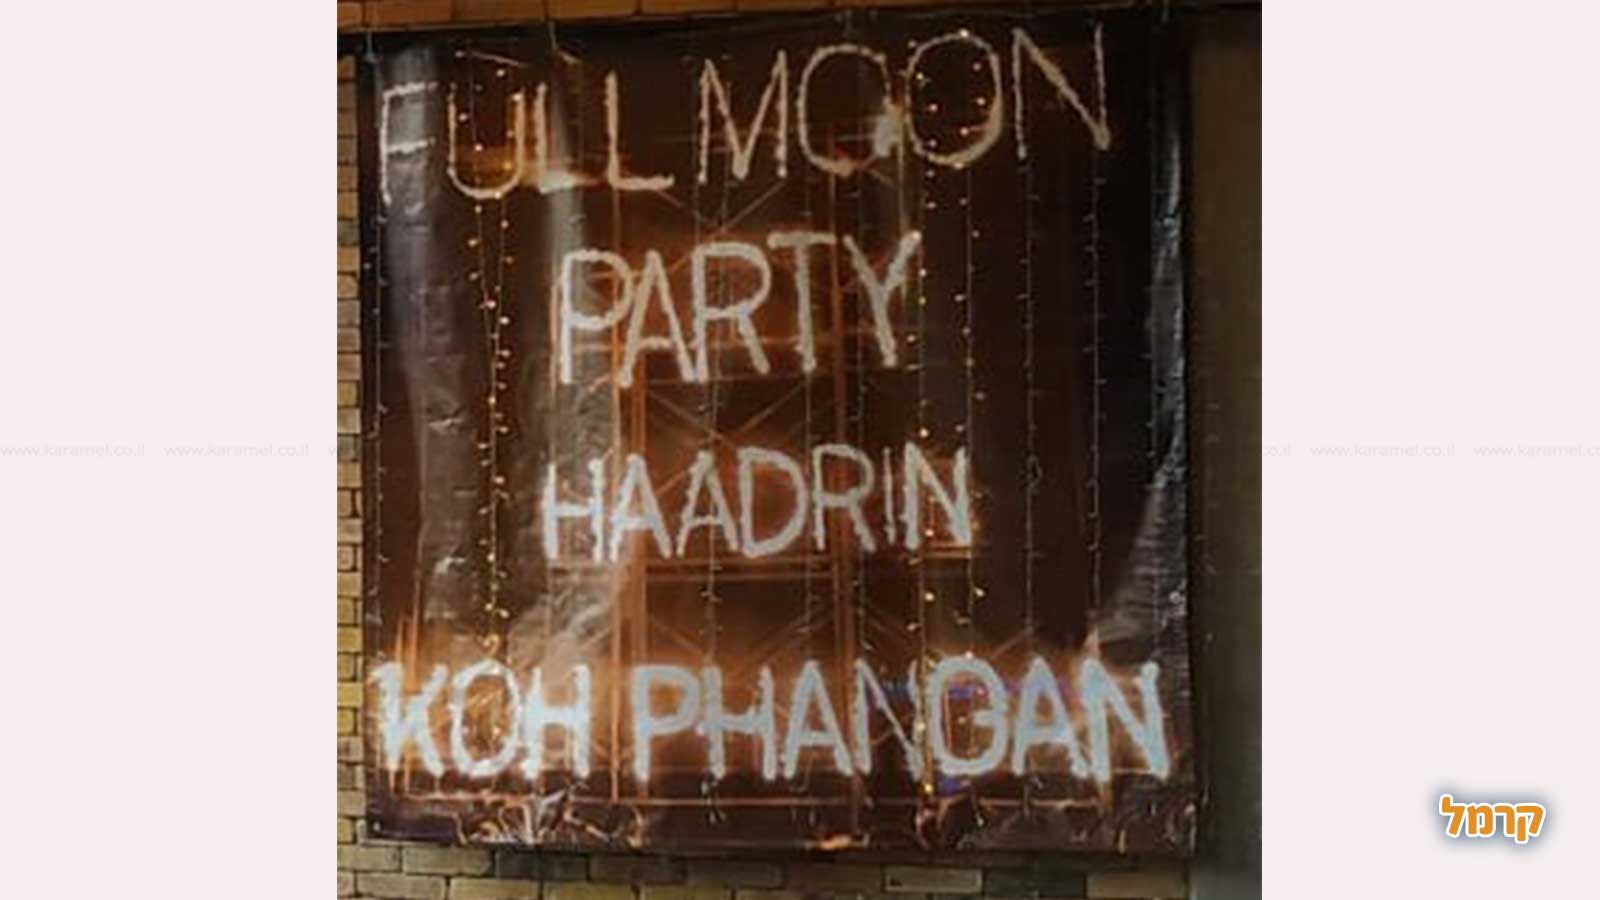 FULL MOON
PARTY
HAADRIN
KOH PHANGAN
www.karamel.co.il www.karamel.co.il
www.karamel.co.il www.karamel.co
קרמל